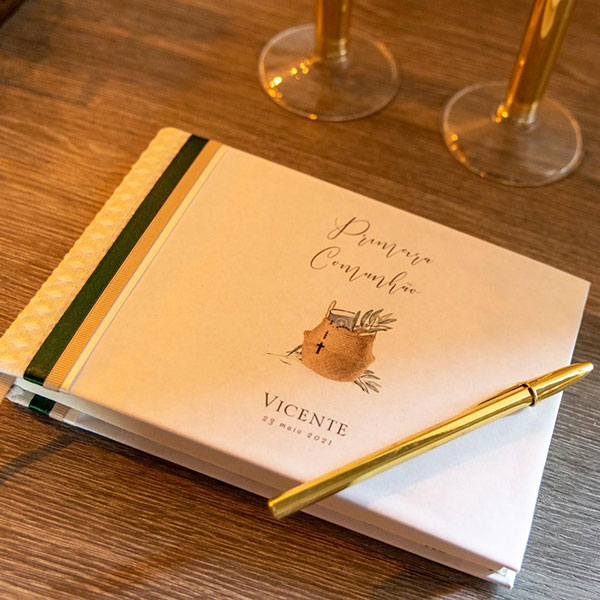 Primeira
Comunhão
VICENTE
23 maio 2021